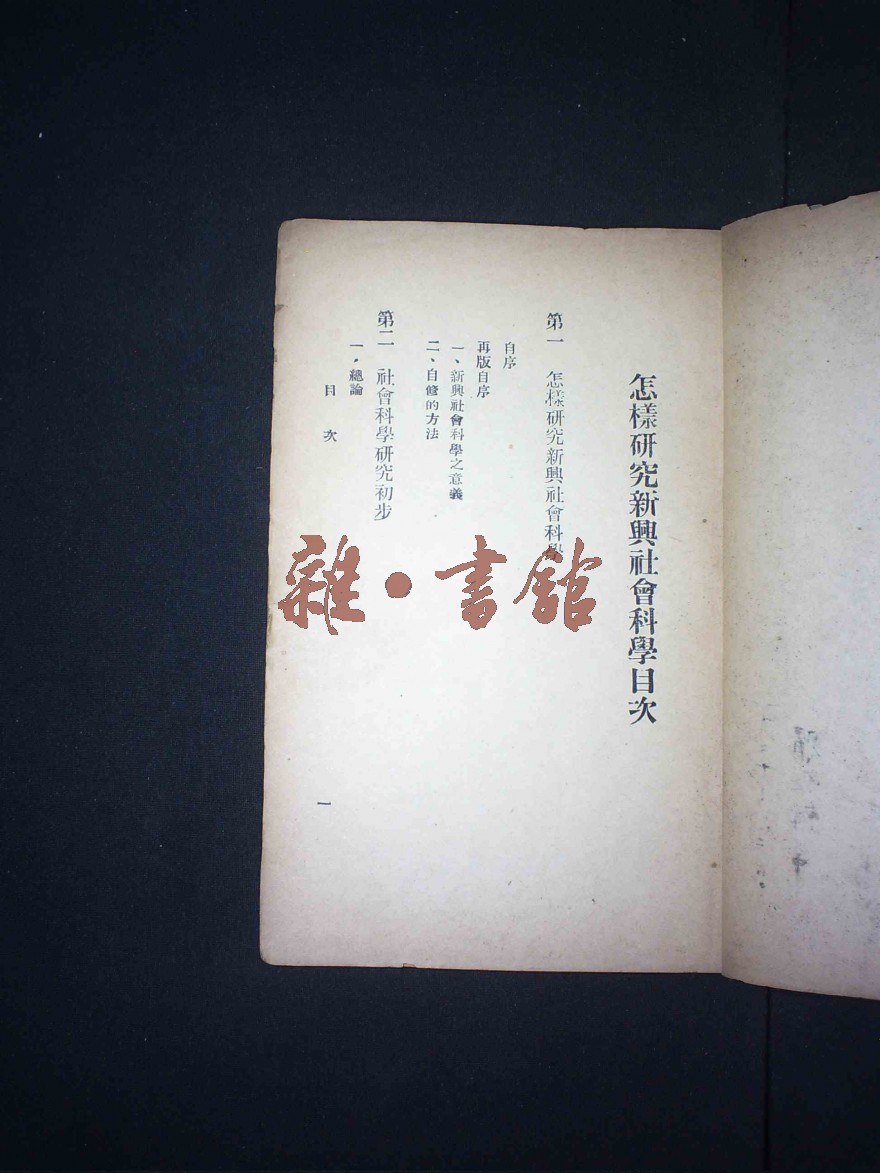 怎樣研究新興社會科學目次
第一 怎樣研究新興社會科學
自序
再版自序
一、新興社會科學之意義
二、自修的方法
第二 社會科學研究初步
一・總論
目次
一
雜・書館